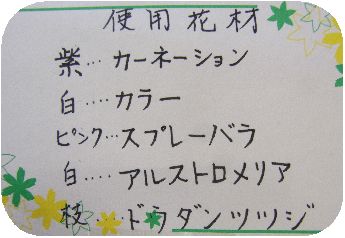 使用花材
紫… カーネーション
白…. カラー
ピンク… スプレーバラ
白…. アルストロメリア
枝… ドウダンツツジ